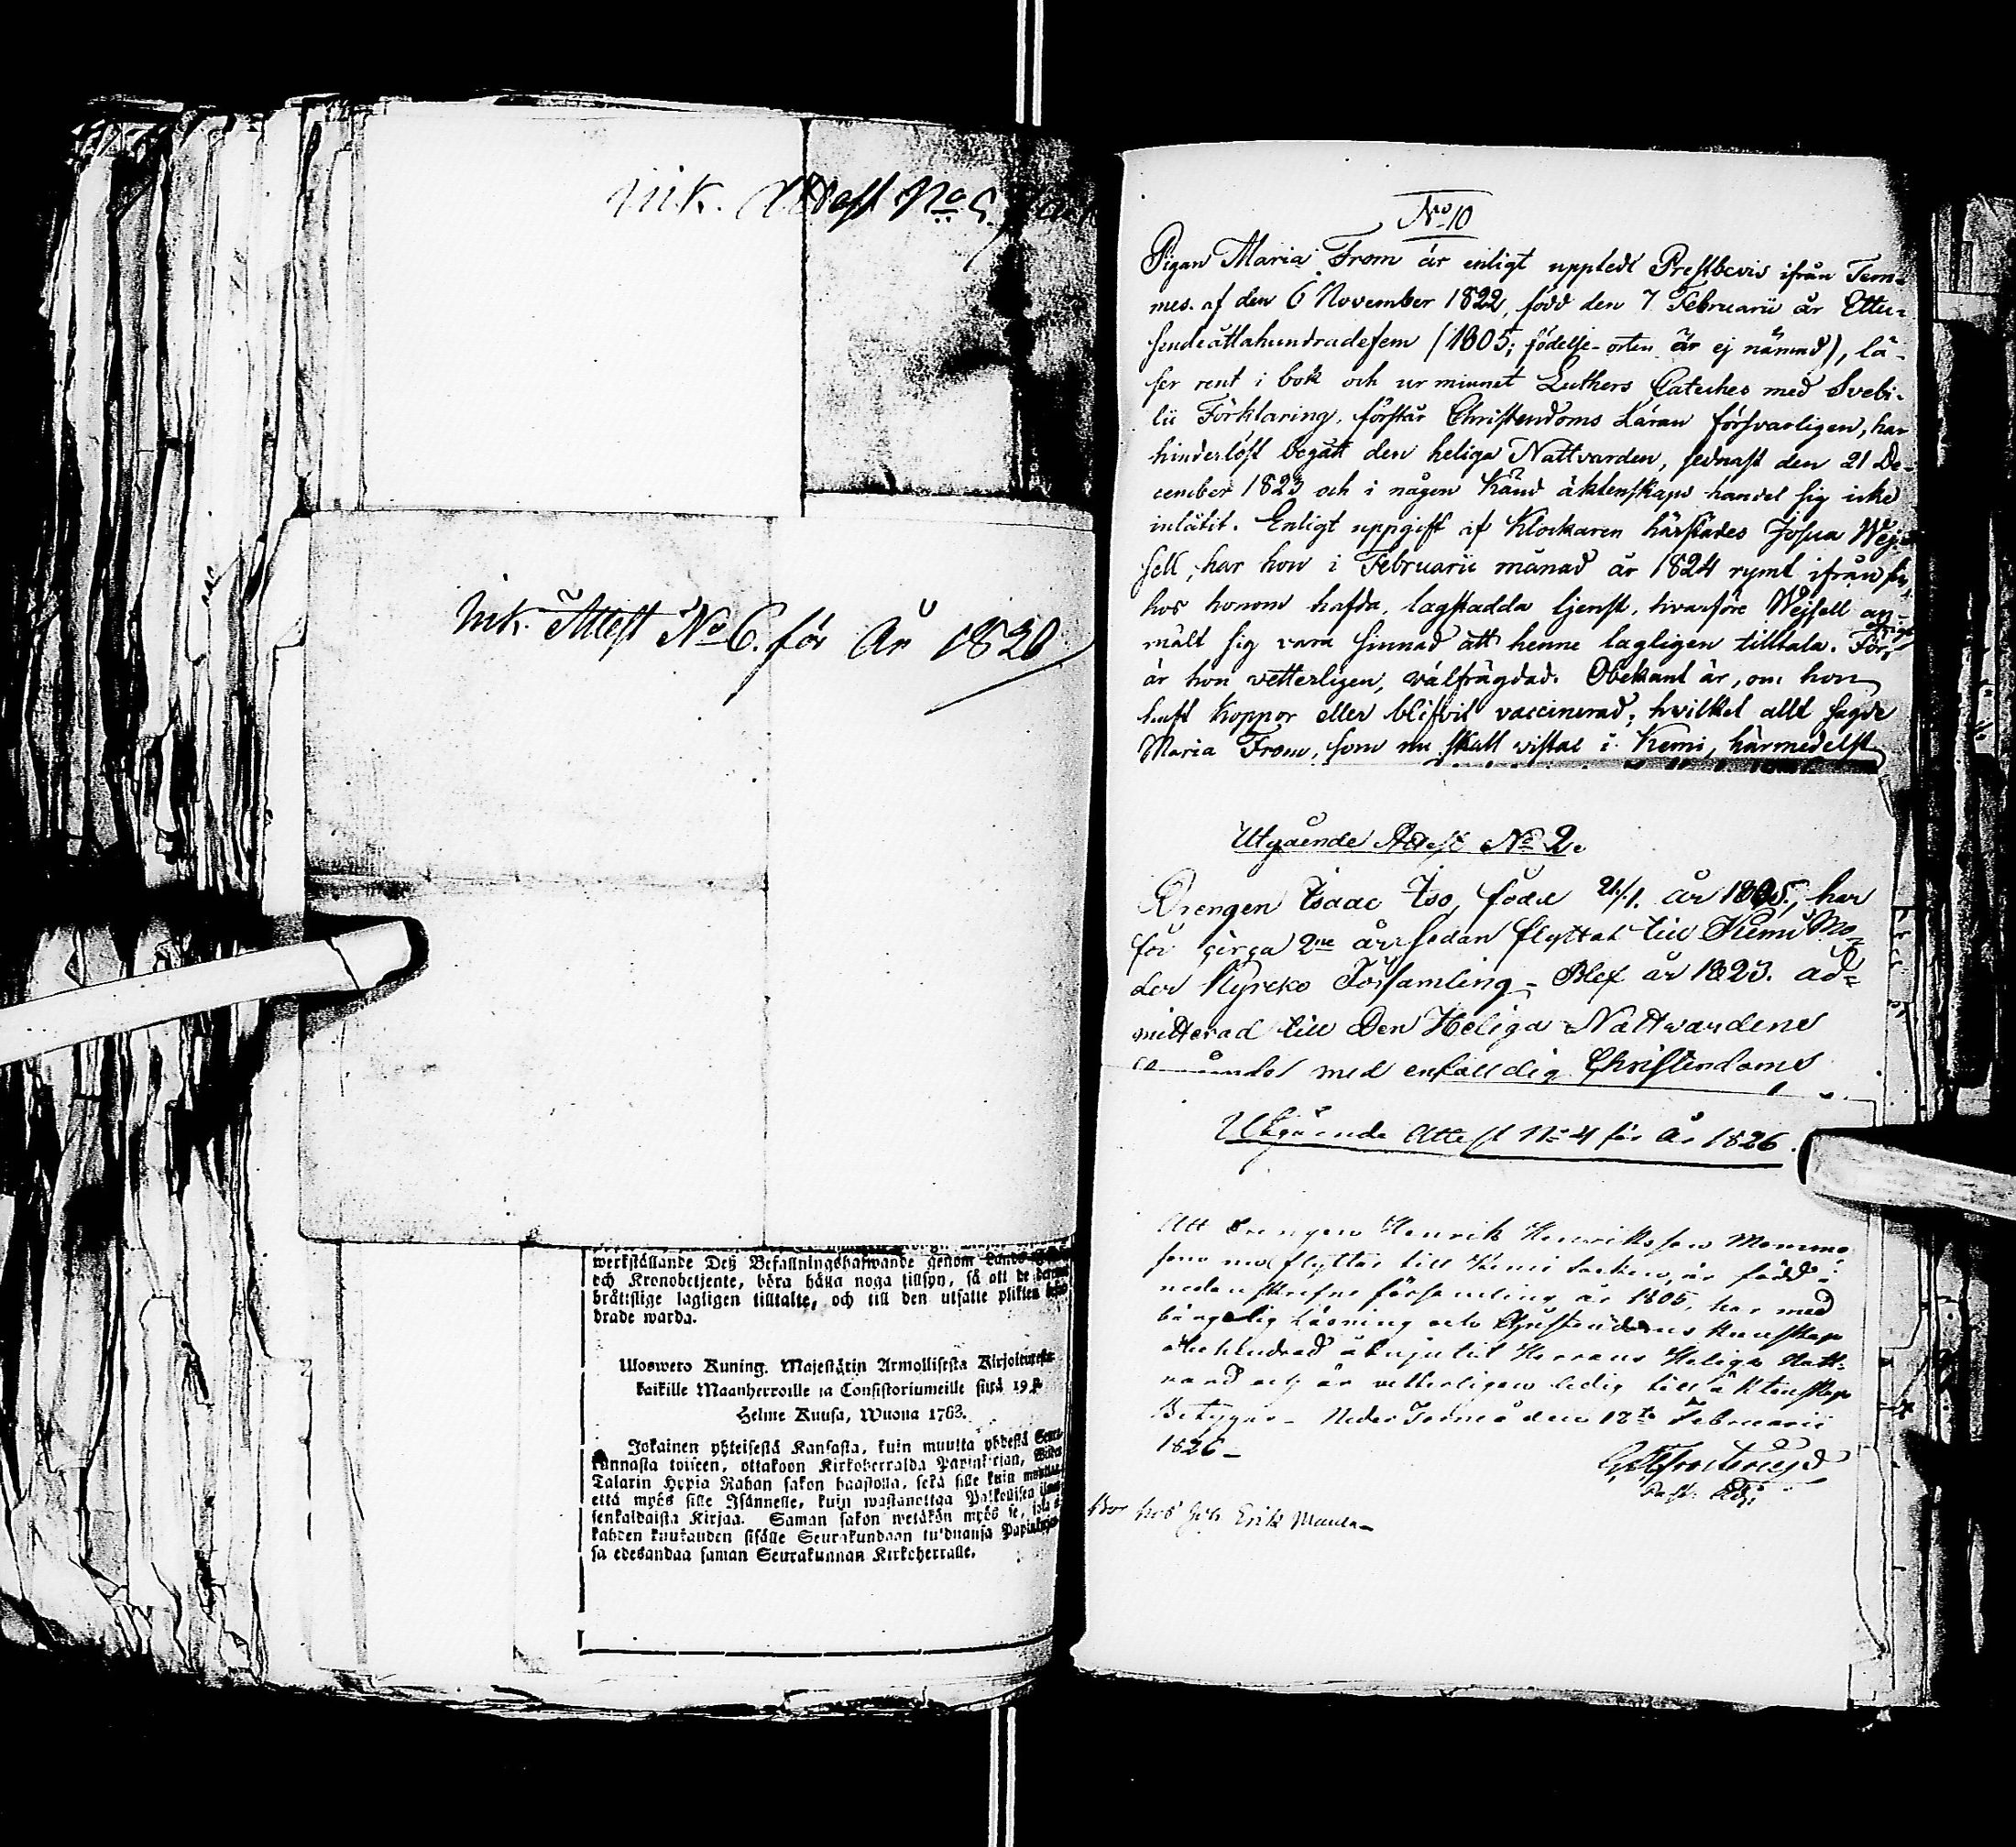 ink. Attest No 5
ink. Attest No 6. för År 1826
werkställande Deß Befallningshafwande genom
och Kronobetjente, böra hålla noga tillsyn, så att de
bråttslige lagligen tilltalte, och till den utsatte plikten
drade warda.
Ulosweto Kuning. Majestätin Armollisesta Kirjoituxesta
kaikille Maanherroille ja Consistoriumeille siitä 19 p.
Helme Kuusa, Wuona 1763.
Jokainen yhteisestä Kansasta, kuin muutta yhdestä Seura-
kunnasta toiseen, ottakoon Kirkoherralda Papinkirjan,
Talarin Hopia Rahan sakon haastolla, sekä sille kuin
että myös sille Isännelle, kuin wastanottaa Palkollisen ilman
senkaldaista Kirjaa. Saman sakon wetäkön myös se, joka ei
kahden kuukauden sisälle Seurakundaan tulduansa Papinkirjan-
sa edesandaa saman Seurakunnan Kirkoherralle.
No 10
Pigan Maria From är enligt uppledt Prestbevis ifrån Tem-
mes. af den 6 November 1822, född den 7 Februarii år Ettu-
sendeåttahundradefem (1805; födelse-orten är ej nämnd), lä-
ser rent i bok och ur minnet Luthers Cateches med Svebi-
lii Förklaring, förstår Christendoms Läran försvarligen, har
hinderlöst begått den heliga Nattvarden, sednast den 21 De-
cember 1823 och i någon känd äktenskaps handel sig icke
inlåtit. Enligt uppgift af Klockaren härstädes Josua Wej-
sell, har hon i Februarii månad år 1824 rymt ifrån sin
hos honom hafda, lagstadda tjenst, hvarföre Wejsell an-
mält sig vara sinnad att henne lagligen tilltala. För öfrigt
är hon vetterligen, välfrägdad. Obekant är, om hon
haft koppor eller blifvit vaccinerad; hvilket allt sagde
Maria From, som nu skall vistas i Kemi, härmedelst
Utgående Attest No 2.
Drengen Isaac Iso, född 21/1. år 1805, har
för circa 2ne år sedan flyttat till Kemi Mo-
der Kyrcko Församling - Blef år 1823. ad-
mitterad till Den Heliga Nattvardens
med enfalldig Christendoms
Utgående Attest No 4 för År 1826.
Att Drengen Henrik Henriksson Mommo
som nu flyttar till Kemi Socken, är född i
nedanskrefne församling år 1805, har med
hängelig läsning och Christendoms kunskap
ohehindrad åtnjutit Herrans Heliga Natt-
vard och är vetterligen ledig till äktenskap
Betygar - Neder Torneå den 12te Februarii
1826 -
Bor hos Joh Erik